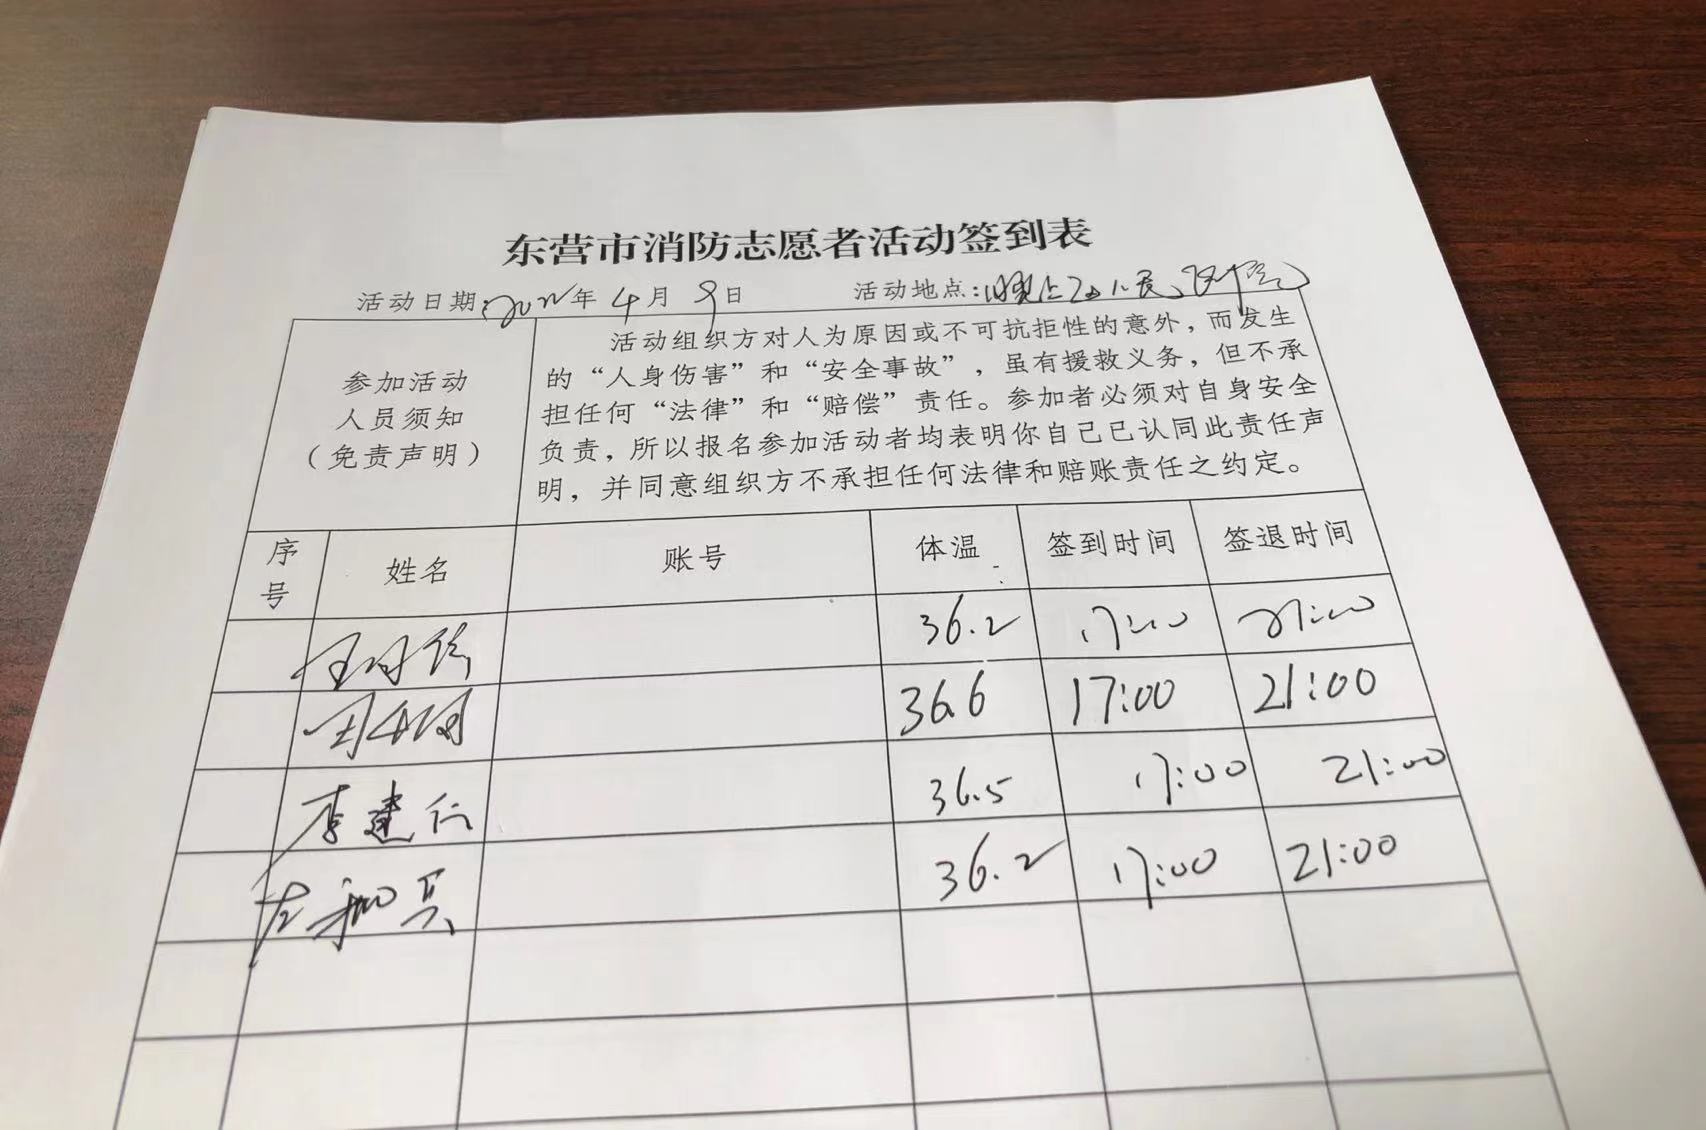 东营市消防志愿者活动签到表
活动日期:2022年4月9日 活动地点:
参加活动
人员须知
（免责声明）
活动组织方对人为原因或不可抗拒性的意外，而发生
的“人身伤害”和“安全事故”，虽有援救义务，但不承
担任何“法律”和“赔偿”责任。参加者必须对自身安全
负责，所以报名参加活动者均表明你自己已认同此责任声
明，并同意组织方不承担任何法律和赔账责任之约定。
序号 姓名 账号 体温 签到时间 签退时间
36.2 17:00 21:00
36.6 17:00 21:00
李建仁 36.5 17:00 21:00
36.2 17:00 21:00